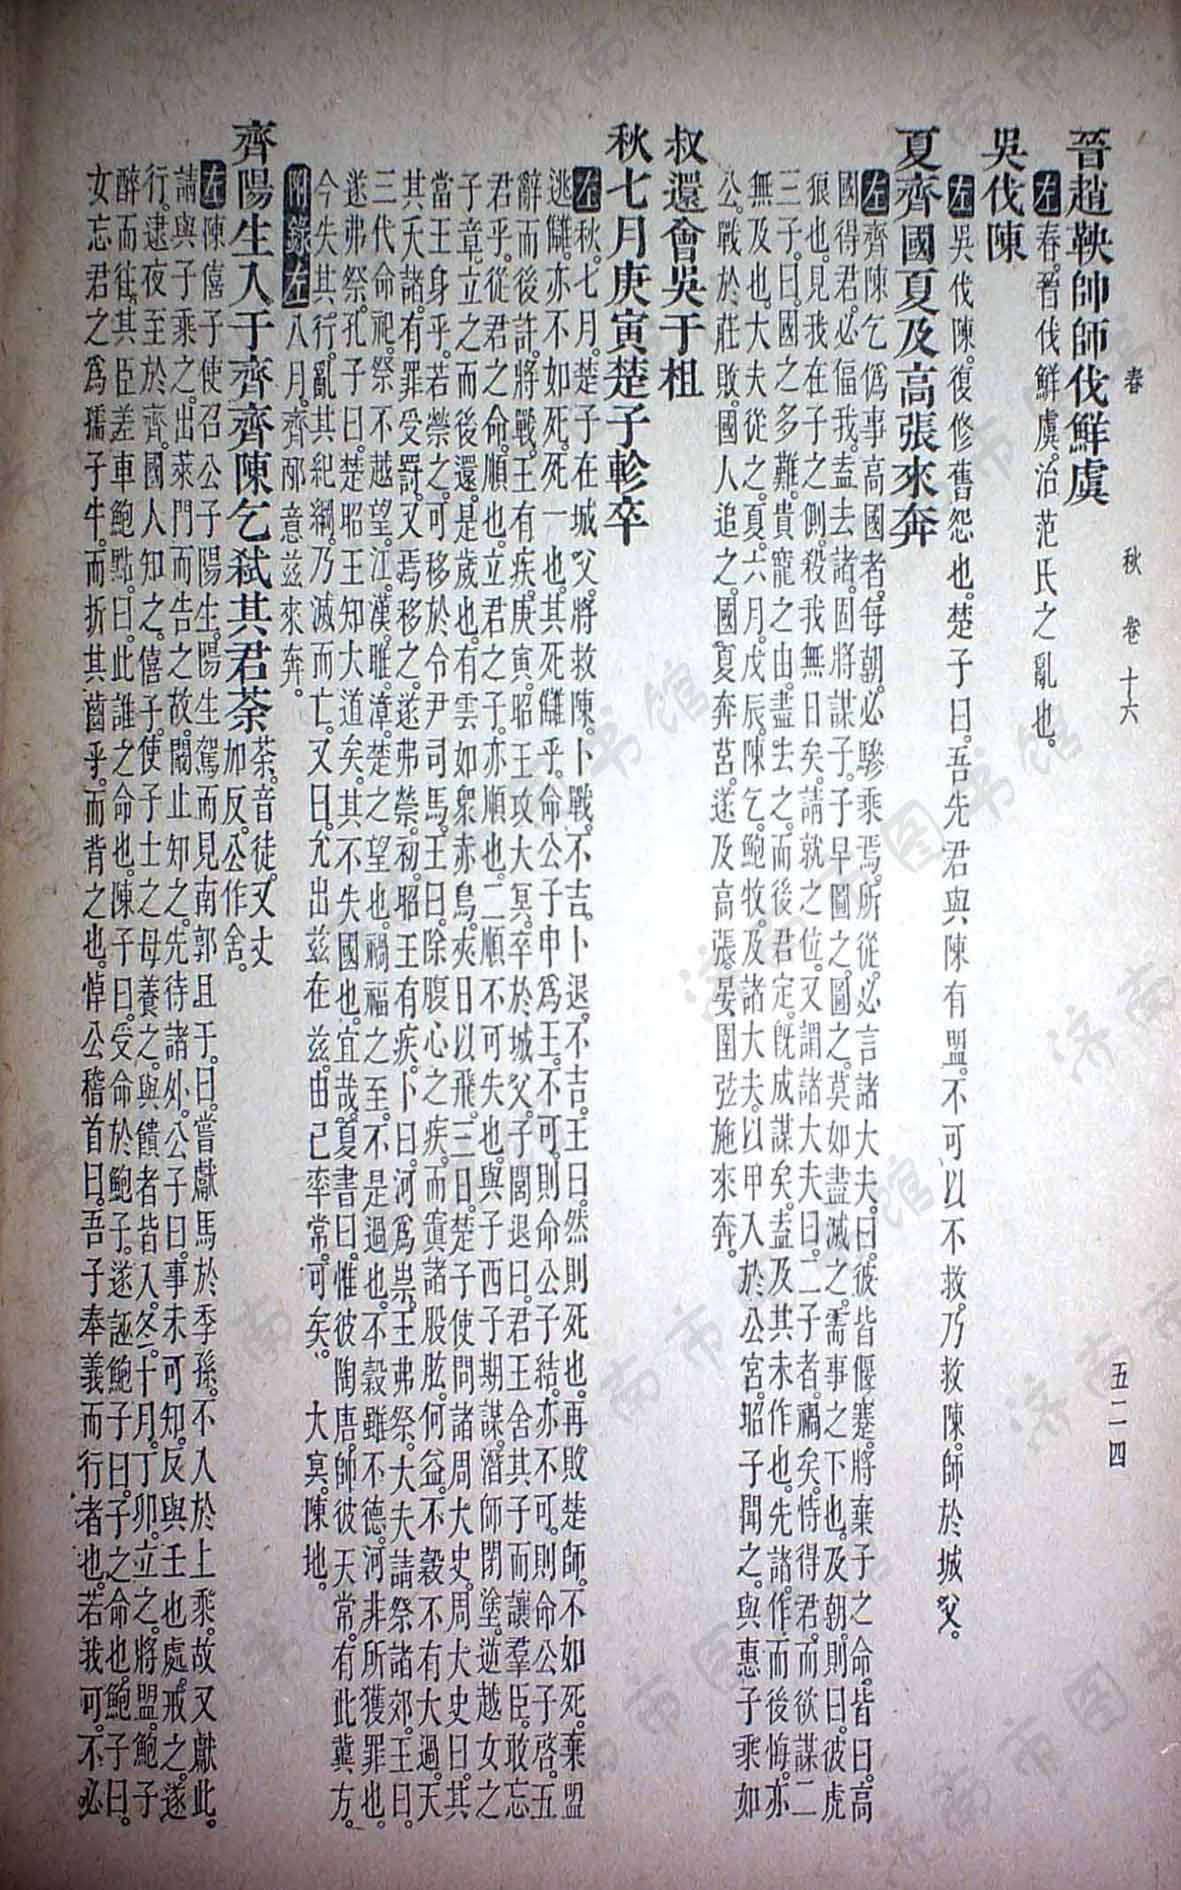 春秋 卷十六 五二四
晉趙鞅帥師伐鮮虞
左春。晉伐鮮虞。治范氏之亂也。
吳伐陳
左吳伐陳。復修舊怨也。楚子曰。吾先君與陳有盟。不可以不救。乃救陳。師於城父。
夏齊國夏及高張來奔
左齊陳乞僞事高國者。每朝。必驂乘焉。所從。必言諸大夫。曰。彼皆偃蹇。將棄子之命。皆曰。高
國得君。必偪我。盍去諸。固將謀子。子早圖之。圖之。莫如盡滅之。需事之下也。及朝。則曰。彼虎
狼也。見我在子之側。殺我無日矣。請就之位。又謂諸大夫曰。二子者。禍矣。恃得君。而欲謀二
三子。曰。國之多難。貴寵之由。盡去之。而後君定。旣成謀矣。盍及其未作也。先諸。作而後悔。亦
無及也。大夫從之。夏。六月。戊辰。陳乞。鮑牧。及諸大夫。以甲入於公宮。昭子聞之。與惠子乘如
公。戰於莊。敗。國人追之。國夏奔莒。遂及高張。晏圉弦施來奔。
叔還會吳于柤
秋七月庚寅楚子軫卒
左秋。七月。楚子在城父。將救陳。卜戰。不吉。卜退。不吉。王曰。然則死也。再敗楚師。不如死。棄盟
逃讎。亦不如死。死一也。其死讎乎。命公子申爲王。不可。則命公子結。亦不可。則命公子啓。五
辭而後許。將戰。王有疾。庚寅。昭王攻大冥。卒於城父。子閭退曰。君王舍其子而讓羣臣。敢忘
君乎。從君之命。順也。立君之子。亦順也。二順不可失也。與子西子期謀。潛師閉塗。逆越女之
子章。立之。而後還。是歲也。有雲如衆赤鳥。夾日以飛。三日。楚子使問諸周大史。周大史曰。其
當王身乎。若禜之。可移於令尹司馬。王曰。除腹心之疾。而寘諸股肱。何益。不穀不有大過。天
其夭諸。有罪受罰。又焉移之。遂弗禜。初。昭王有疾。卜曰。河爲祟。王弗祭。大夫請祭諸郊。王曰。
三代命祀。祭不越望。江。漢。雎。漳。楚之望也。禍福之至。不是過也。不穀雖不德。河非所獲罪也。
遂弗祭。孔子曰。楚昭王知大道矣。其不失國也。宜哉。夏書曰。惟彼陶唐。帥彼天常。有此冀方。
今失其行。亂其紀綱。乃滅而亡。又曰。允出茲在茲。由己率常。可矣。 大冥。陳地。
附錄左八月。齊邴意茲來奔。
齊陽生入于齊齊陳乞弒其君荼 荼。音徒。又丈加反。公作舍。
左陳僖子使召公子陽生。陽生駕而見南郭且于。曰。嘗獻馬於季孫。不入於上乘。故又獻此。
請與子乘之。出萊門而告之故。闞止知之。先待諸外。公子曰。事未可知。反與壬也處。戒之。遂
行。逮夜至於齊。國人知之。僖子使子士之母養之。與饋者皆入。冬。十月。丁卯。立之。將盟。鮑子
醉而往。其臣差車鮑點。曰。此誰之命也。陳子曰。受命於鮑子。遂誣鮑子曰。子之命也。鮑子曰。
女忘君之爲孺子牛。而折其齒乎。而背之也。悼公稽首曰。吾子奉義而行者也。若我可。不必